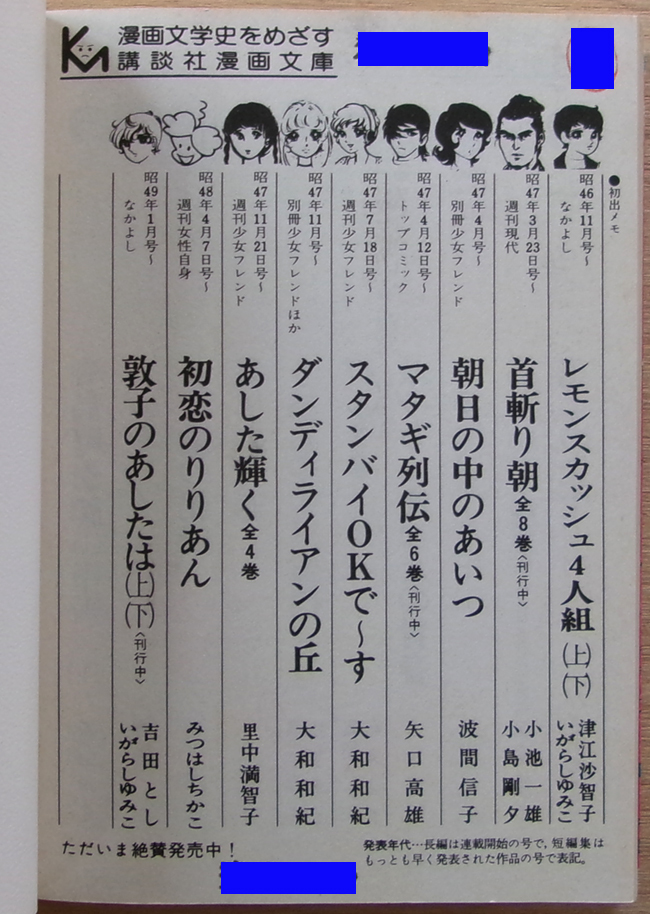 KM
漫画文学史をめざす
講談社漫画文庫
●初出メモ
昭46年11月号~
なかよし
レモンスカッシュ4人組(上)(下)
津江沙智子
いがらしゆみこ
昭47年3月23日号~
週刊現代
首斬り朝全8巻〈刊行中〉
小池一雄
小島剛夕
昭47年4月号~
別冊少女フレンド
朝日の中のあいつ
波間信子
昭47年4月12日号~
トップコミック
マタギ列伝全6巻〈刊行中〉
矢口高雄
昭47年7月18日号~
週刊少女フレンド
スタンバイOKで~す
大和和紀
昭47年11月号~
別冊少女フレンドほか
ダンディライアンの丘
大和和紀
昭47年11月21日号~
週刊少女フレンド
あした輝く全4巻
里中満智子
昭48年4月7日号~
週刊女性自身
初恋のりりあん
みつはしちかこ
昭49年1月号~
なかよし
敦子のあしたは(上)(下)〈刊行中〉
吉田とし
いがらしゆみこ
発表年代…長編は連載開始の号で,短編集は
もっとも早く発表された作品の号で表記。
ただいま絶賛発売中!